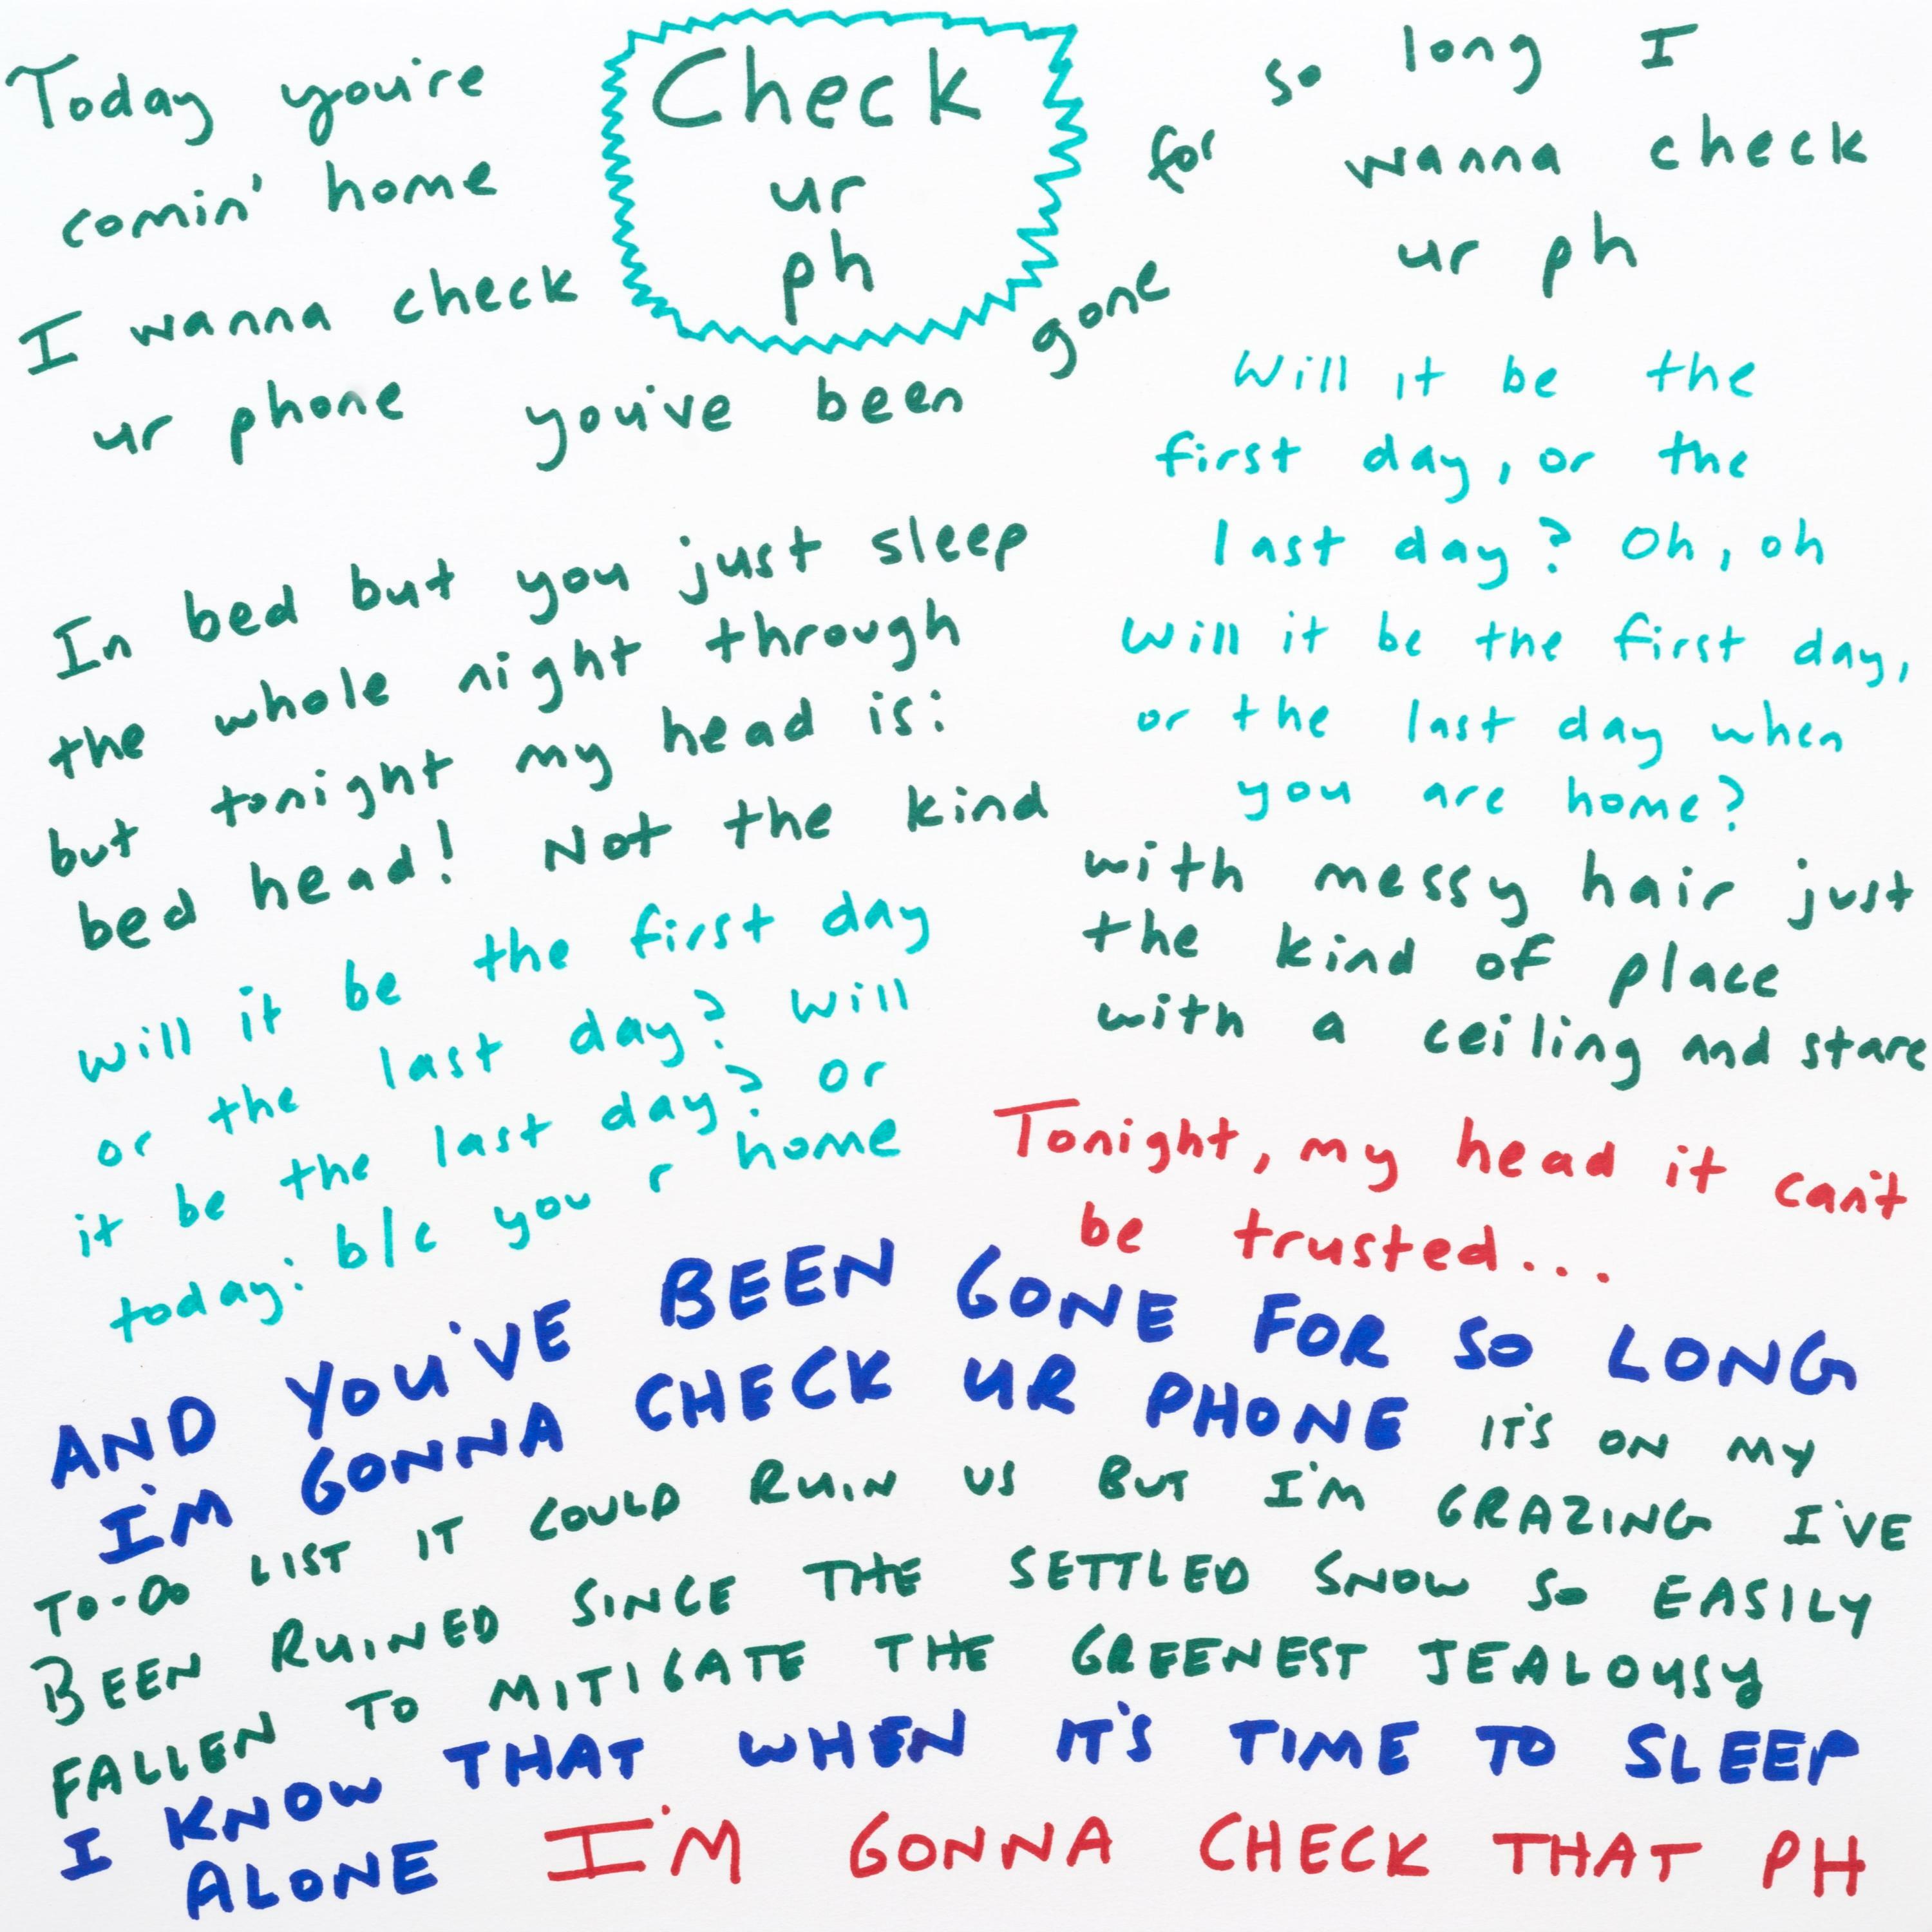 Check
ur
ph
Today you're
comin' home
I wanna check
ur phone you've been gone
for so long I
wanna check
ur ph
Will it be the
first day, or the
last day? Oh, oh
Will it be the first day,
or the last day when
you are home?
In bed but you just sleep
the whole night through
but tonight my head is:
bed head! Not the kind
with messy hair just
the kind of place
with a ceiling and stare
will it be the first day
or the last day? Will
it be the last day? or
today: b/c you r home
Tonight, my head it can't
be trusted...
AND YOU'VE BEEN GONE FOR SO LONG
I'M GONNA CHECK UR PHONE IT'S ON MY
TO-DO LIST IT COULD RUIN US BUT I'M GRAZING I'VE
BEEN RUINED SINCE THE SETTLED SNOW SO EASILY
FALLEN TO MITIGATE THE GREENEST JEALOUSY
I KNOW THAT WHEN IT'S TIME TO SLEEP
ALONE I'M GONNA CHECK THAT PH